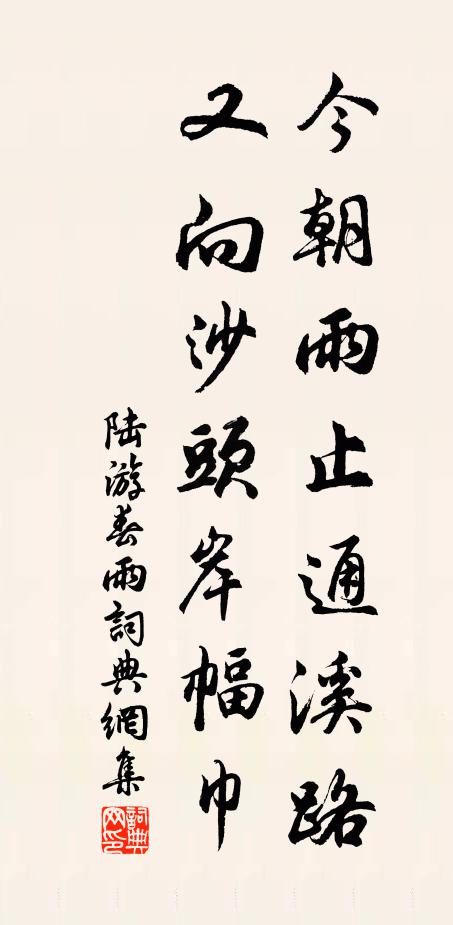 今朝雨止通溪路
又向沙頭岸幅巾
陸游春雨詞典網集
詞典
网印